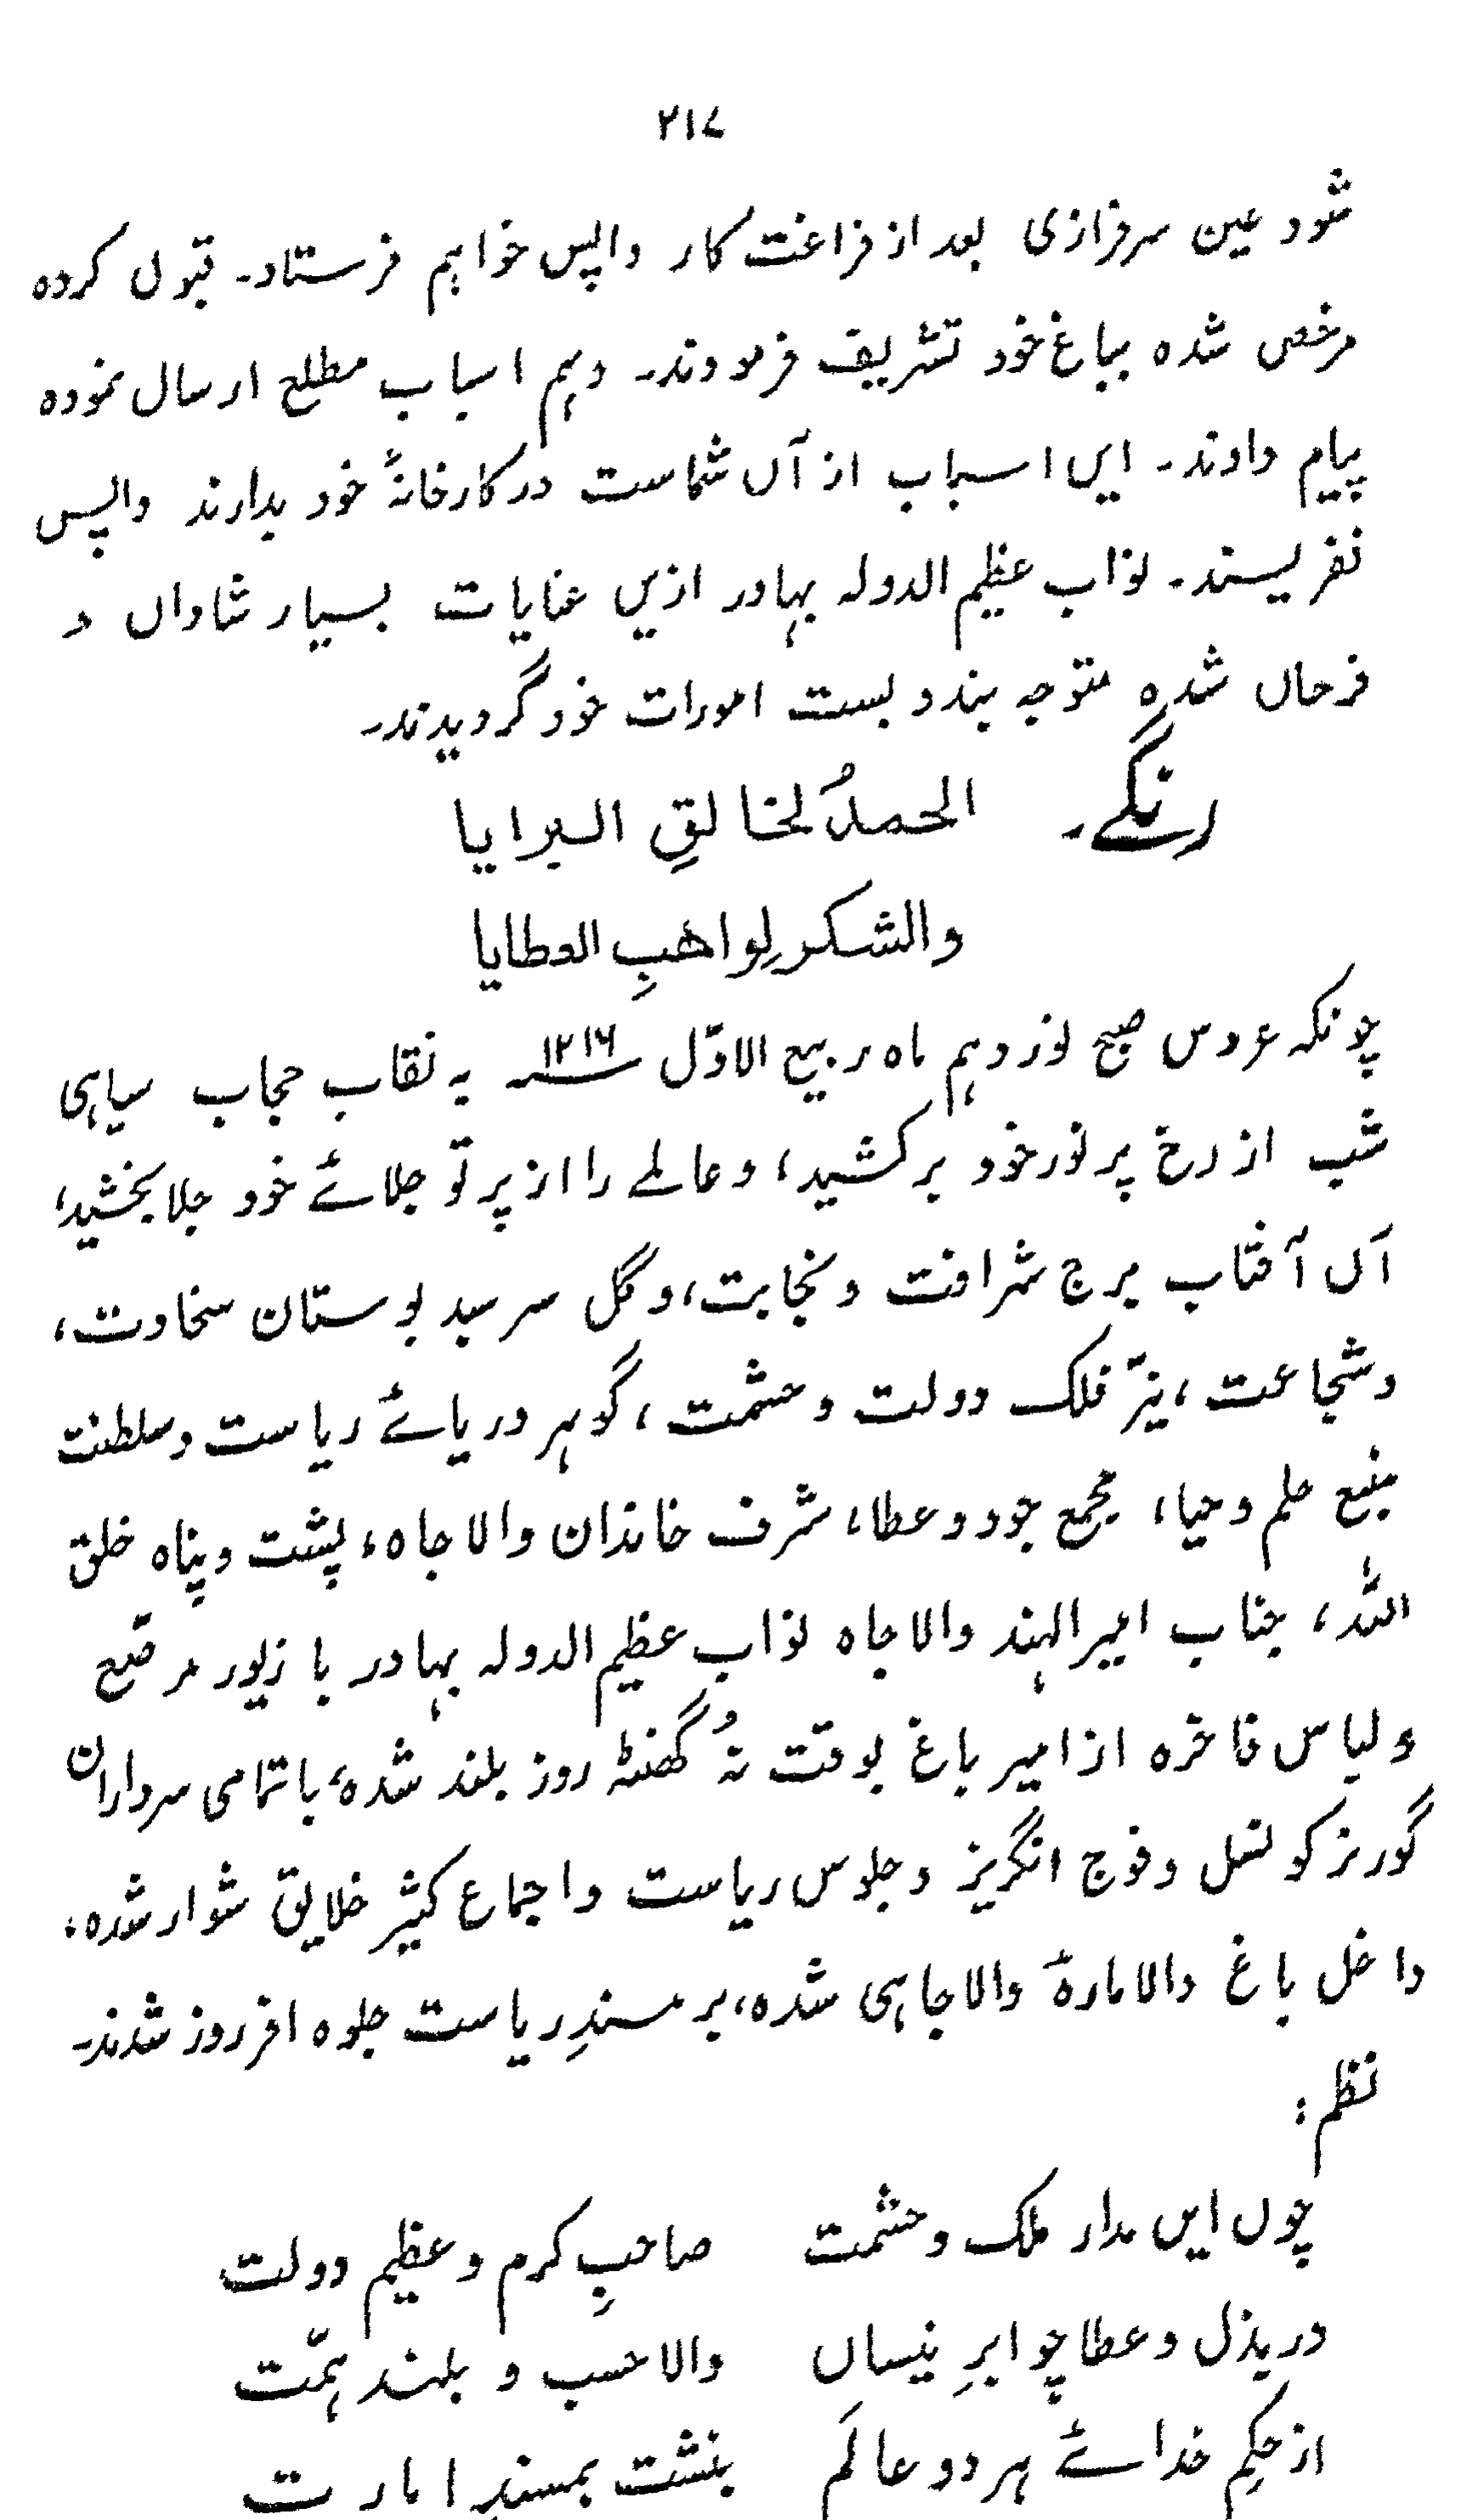 ۲۱۷
شود عین سرفرازی بعد از فراغت کار واپس خواہم فرستاد۔ قبول کردہ
مرخص شدہ بباغ خود تشریف فرمودند۔ وہم اسباب مطلع ارسال نمودہ
پیام دادند۔ ایں اسباب از آں شماست در کارخانۂ خود بدارند واپس
نفریسند۔ نواب عظیم الدولہ بہادر ازیں عنایات بسیار شاداں و
فرحاں شدہ متوجہ بندوبست امورات خود گردیدند۔
رنگے۔ الحمدُ لخالقِ البرایا
والشکر لِواهبِ العطایا
چونکہ عروس صبح نوزدہم ماہ ربیع الاوّل ۱۲۱۶ سنہ بہ نقاب حجاب سیاہی
شب از رخ پر نور خود برکشید، و عالمے را از پر تو جلائے خود جلا بخشید،
آں آفتاب برج شرافت و نجابت، و گل سر سبد بوستان سخاوت،
و شجاعت، نیّر فلک دولت و حشمت، گوہر دریائے ریاست و سلطنت
منبع حلم و حیا، مجمع جود و عطا، شرف خاندان والا جاہ، پشت و پناہ خلق
اللہ، جناب امیر الہند والا جاہ نواب عظیم الدولہ بہادر با زیور مرصّع
و لباس فاخرہ از امیر باغ بوقت نُہ گھنٹہ روز بلند شدہ، با تمامی سرداران
گورنر کونسل و فوج انگریز و جلوس ریاست و اجماع کثیر خلایق شوار شدہ،
داخل باغ والا مارۂ والا جاہی شدہ، بر مسندِ ریاست جلوہ افروز شدند۔
نظم:
چوں ایں مدار ملک و حشمت صاحبِ کرم و عظیم دولت
در بذل و عطا چو ابرِ نیساں والا حسب و بلند ہمّت
از حکِم خدائے ہر دو عالَم بنشت بمسندِ امارت